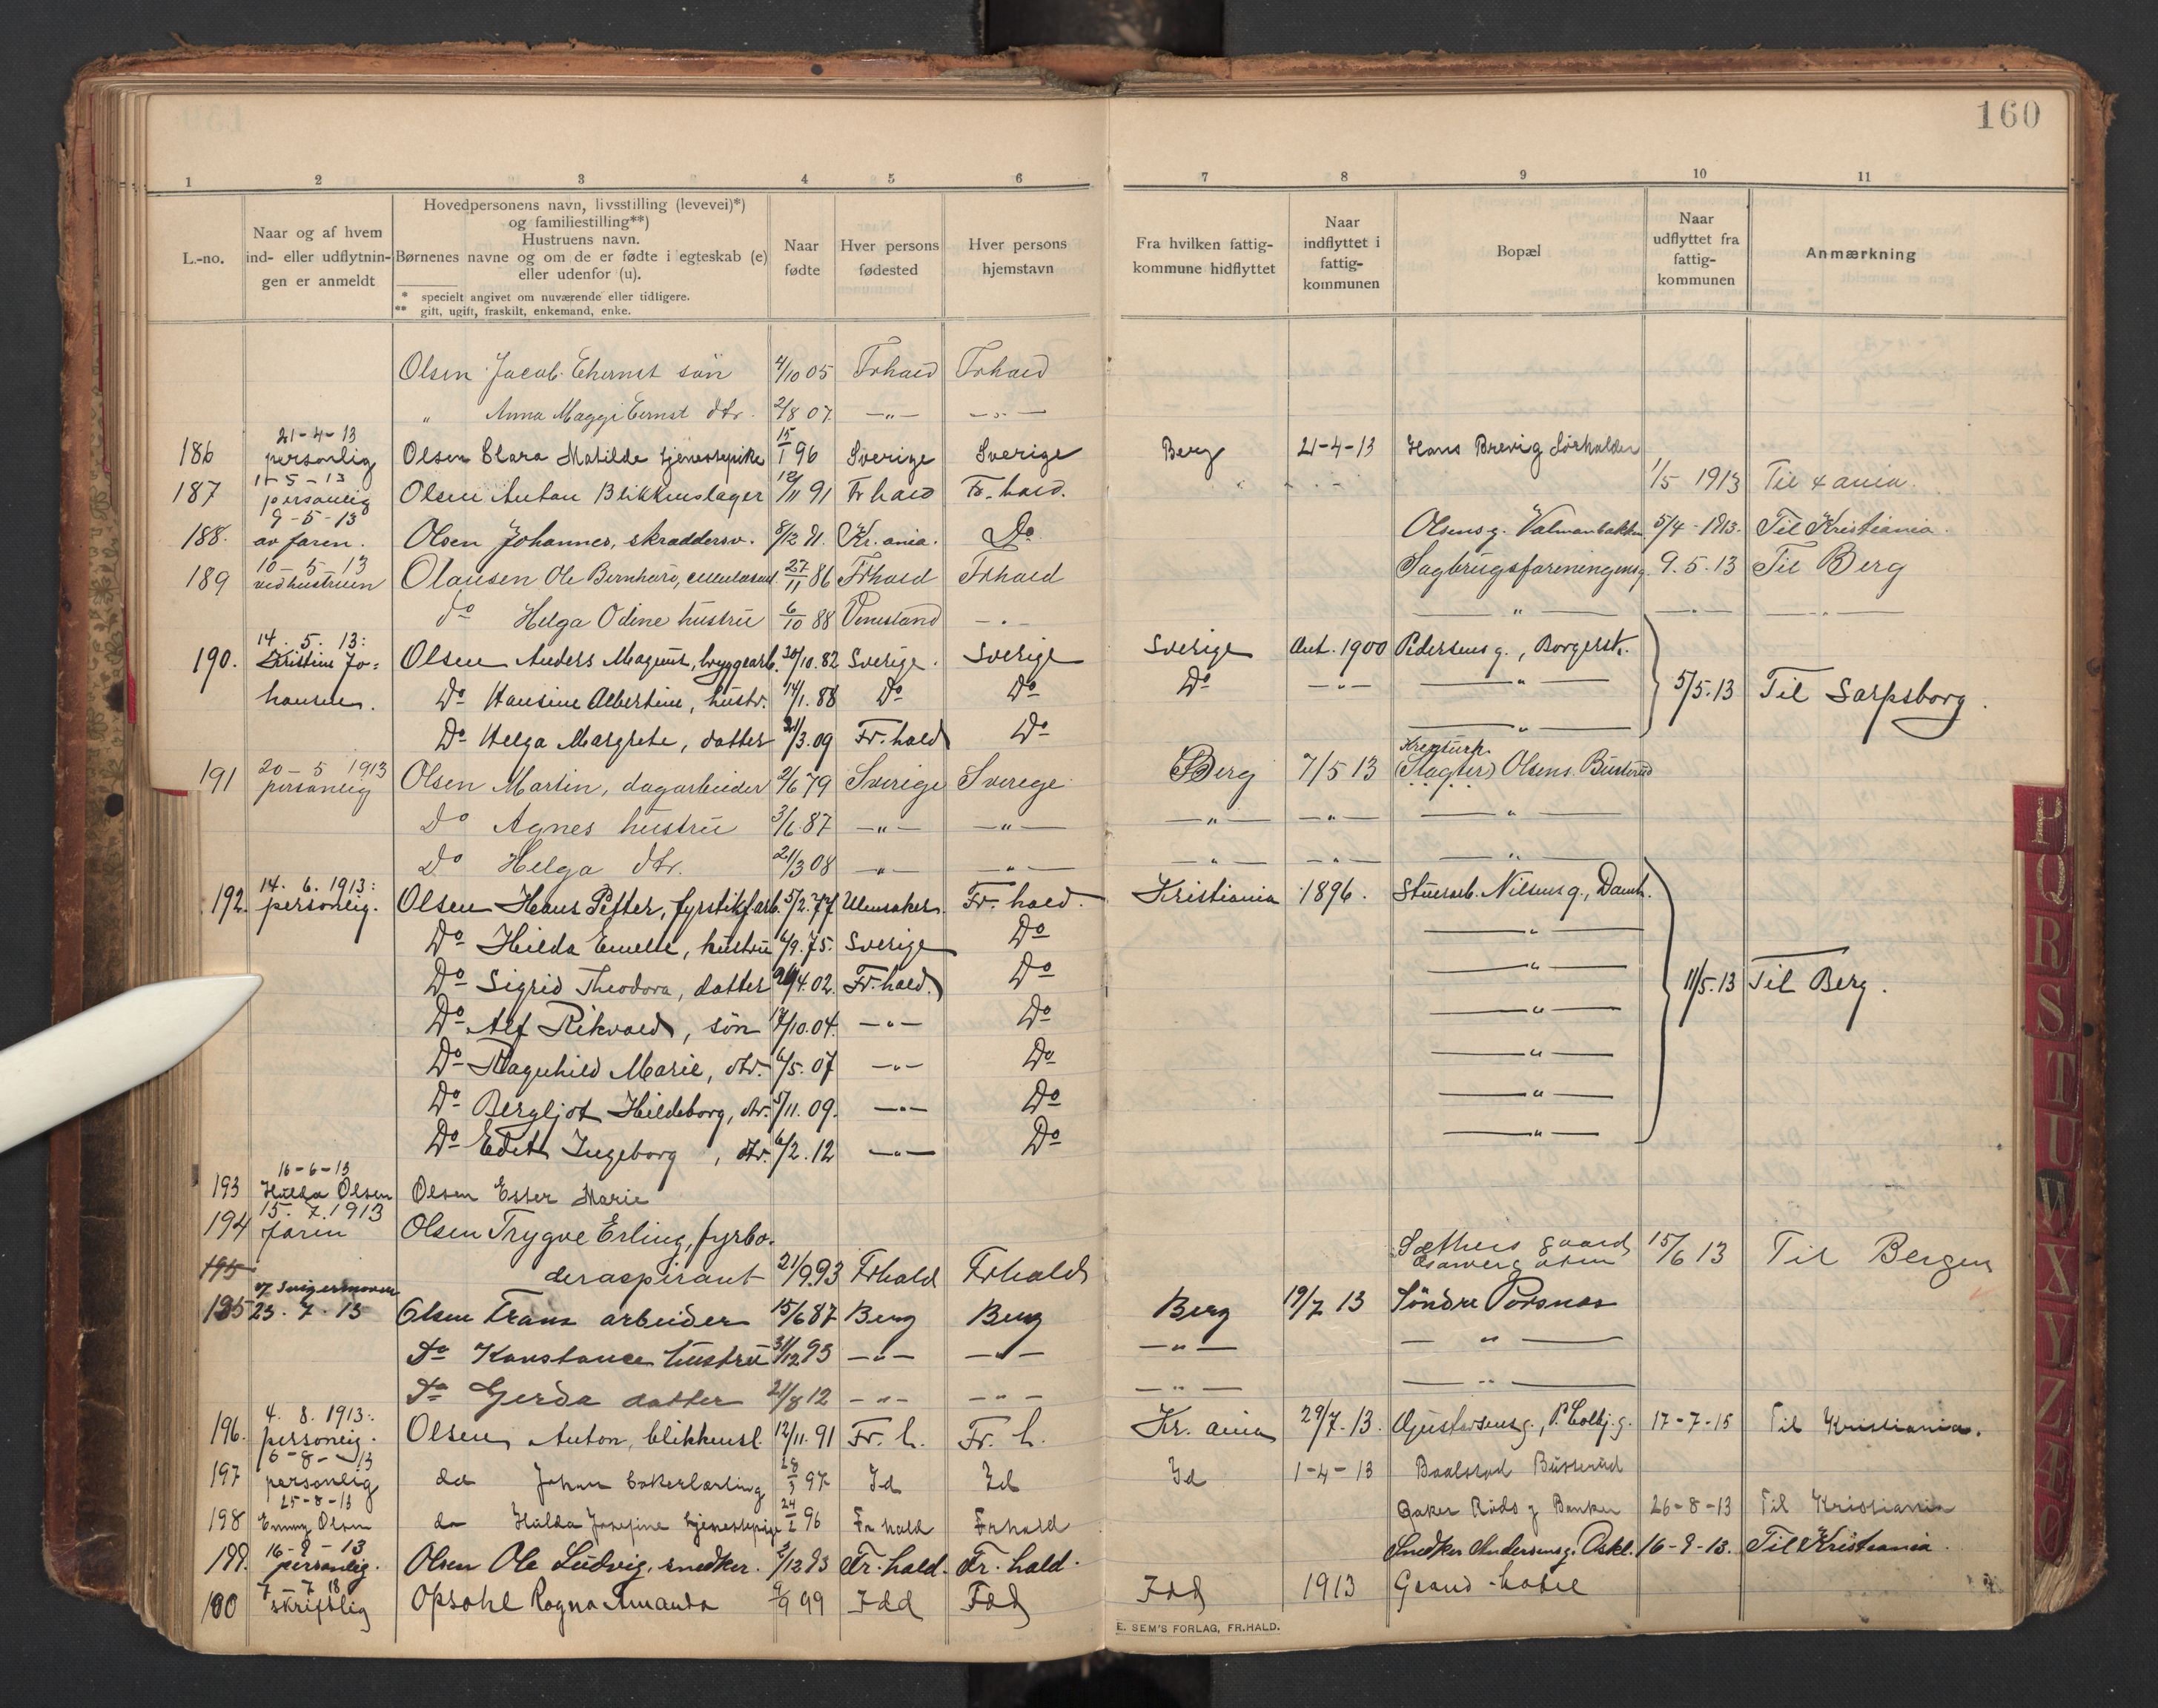 160
1 2 3 4 5 6 7 8 9 10 11
L.-no.
Naar og af hvem
ind- eller udflytnin-
gen er anmeldt
Hovedpersonens navn, livsstilling (levevei)*)
og familiestilling**)
Hustruens navn.
Børnenes navne og om de er fødte i egteskab (e)
eller udenfor (u).
* specielt angivet om nuværende eller tidligere.
** gift, ugift, fraskilt, enkemand, enke.
Naar
fødte
Hver persons
fødested
Hver persons
hjemstavn
Fra hvilken fattig-
kommune hidflyttet
Naar
indflyttet i
fattig-
kommunen
Bopæl
Naar
udflyttet fra
fattig-
kommunen
Anmærkning
Olsen Jacob Ehernst søn 4/10 05 Frhald Frhald
" Anna Maggi Ernst dtr. 2/8 07 —"— —"—
21-4-13
186 personlig Olsen Clara Matilde tjenestepike 15/1 96 Sverige Sverige Berg 21-4-13 Hans Brevig Sørhalden
11-5-13
187 personlig Olsen Anton Blikkenslager 12/11 91 Fr hald Fr. hald. 1/5 1913 Til X ania.
9-5-13
188. av faren. Olsen Johannes, skrædersv. 8/12 91. Kr. ania. Do Olsens g. Valmanbakken 5/4-1913. Til Kristiania.
10-5-13
189 ved hustruen Olausen Ole Bernhard, 27/11 86 Frhald Frhald Sagbrugsforeningens g. 9.5.13 Til Berg
do Helga Odine hustru 6/10 88 —"— —"— —"— —"—
14. 5. 13:
190. Kristine Jo- Olsen Anders Magnus, bryggearb. 30/10.82 Sverige. Sverige Sverige Ant. 1900 Pedersens g., Borgerst.
hansen. Do Hansine Albertine, hustr. 14/1.88 Do Do Do —"— —"— 5/5.13 Til Sarpsborg.
Do Helga Margrete, datter 21/3.09 Fr. hald Do —"—
20-5 1913
191 personlig Olsen Martin, dagarbeider 2/6 79 Sverige Sverege Berg 7/5 13 (Slagter) Olsens Busterud
Do Agnes hustru 3/6 87 —"— —"— —"— —"— —"—
Do Helga dtr. 21/3 08 —"— —"— —"— —"— —"—
14. 6. 1913:
192. personlig. Olsen Hans Petter, fyrstikfarb. 5/2.77 Ulensaker. Fr. hald. Kristiania 1896. Stuerarb. Nilsens g., Damh.
Do Hilda Emelie, hustru 6/9.75. Sverige Do —"—
Do Sigrid Theodora, datter 26/4.02. Fr. hald. Do —"— 11/5.13 Til Berg.
Do Alf Rikvald, søn 17/10.04. —"— Do —"—
Do Ragnhild Marie, dtr. 6/5.07 —"— Do —"—
Do Bergljot Hildeborg, dtr. 5/11.09. —"— Do —"—
Do Edith Ingeborg, dtr. 6/2.12 —"— Do —"—
16-6-13
193 Hulda Olsen Olsen Ester Marie
15. 7. 1913
194 faren Olsen Trygve Erling, fyrbø-
195 deraspirant 21/9 93 Frhald Frhald Sæthers gaard 15/6 13 Til Bergen
195 23. 7. 13 Olsen Frans arbeider 15/6 87 Berg Berg Berg 19/7 13 Søndre Porsnes
Do Konstance hustru 31/12 93 —"— —"— —"— —"—
Do Gerda datter 21/8 12 —"— —"— —"— —"—
4. 8. 1913:
196. personlig. Olsen Anton, blikkensl. 12/11. 91 Fr. h. Fr. h. Kr. ania 29/7.13. Gustavsens g., P. Colbj. g. 17-7-15 Til Kristiania.
6-8-13
197 personlig do Johan bakerlærling 28/3 97 Id Id Id 1-4-13 Baalstad Busterud
25-8-13
198 Emmy Olsen do Hulda Josefine tjenestepige 24/2 96 Fr hald Frhald Baker Røds g Banken 26-8-13 Til Kristiania
16-9-13
199. personlig. Olsen Ole Ludvig, snedker. 3/12 93 Fr. hald. Fr. hald. Snedker Andersens g. Oskl. 16-9-13. Til Kristiania.
7-7 18
100 skriftlig Opsahl Ragna Amanda 9/9 99 Idd Idd Idd 1913 Grand hotel
E. SEM'S FORLAG, FR.HALD.
P
Q
R
S
T
U
W
X
Y
Z
Æ
Ø